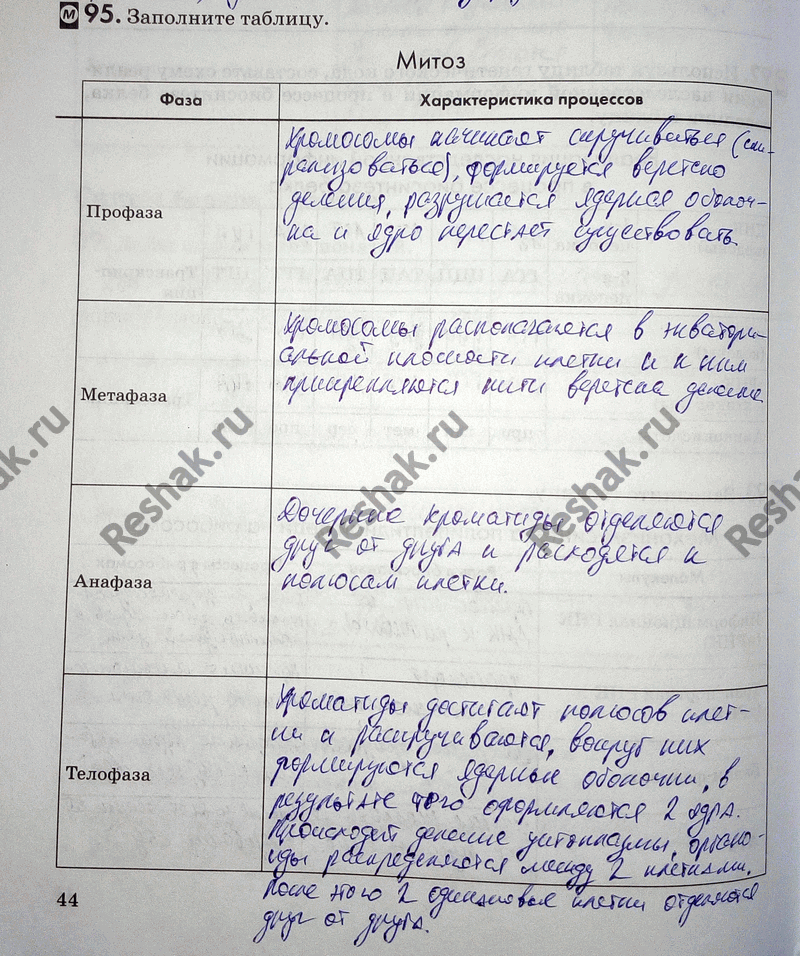 95. Заполните таблицу.
Митоз
Фаза
Характеристика процессов
Профаза
Хромосомы начинают скручиваться (спи-
рализоваться), формируется веретено
деления, разрушается ядерная оболоч-
ка и ядро перестает существовать
Метафаза
Хромосомы располагаются в экватори-
альной плоскости клетки и к ним
прикрепляются нити веретена деления
Анафаза
Дочерние хроматиды отделяются
друг от друга и расходятся к
полюсам клетки.
Телофаза
Хроматиды достигают полюсов клет-
ки и раскручиваются, вокруг них
формируются ядерные оболочки, в
результате чего оформляются 2 ядра.
Происходит деление цитоплазмы, органо-
иды распределяются между 2 клетками.
После этого 2 одинаковые клетки отделяются
друг от друга.
44
Reshak.ru
Reshak.ru
Reshak.ru